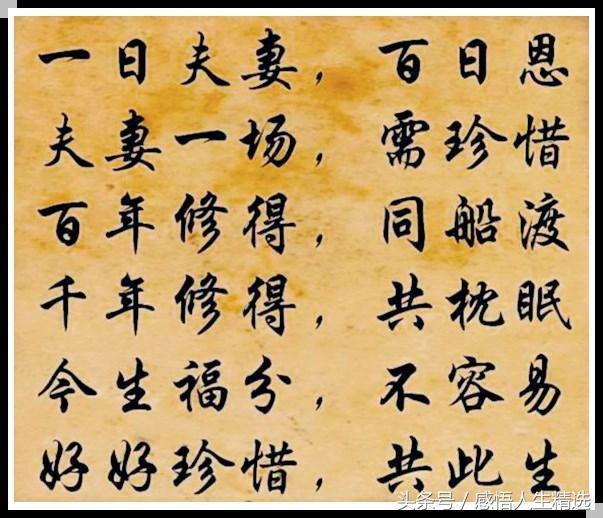 一日夫妻，百日恩
夫妻一场，需珍惜
百年修得，同船渡
千年修得，共枕眠
今生福分，不容易
好好珍惜，共此生
头条号／感悟人生精选